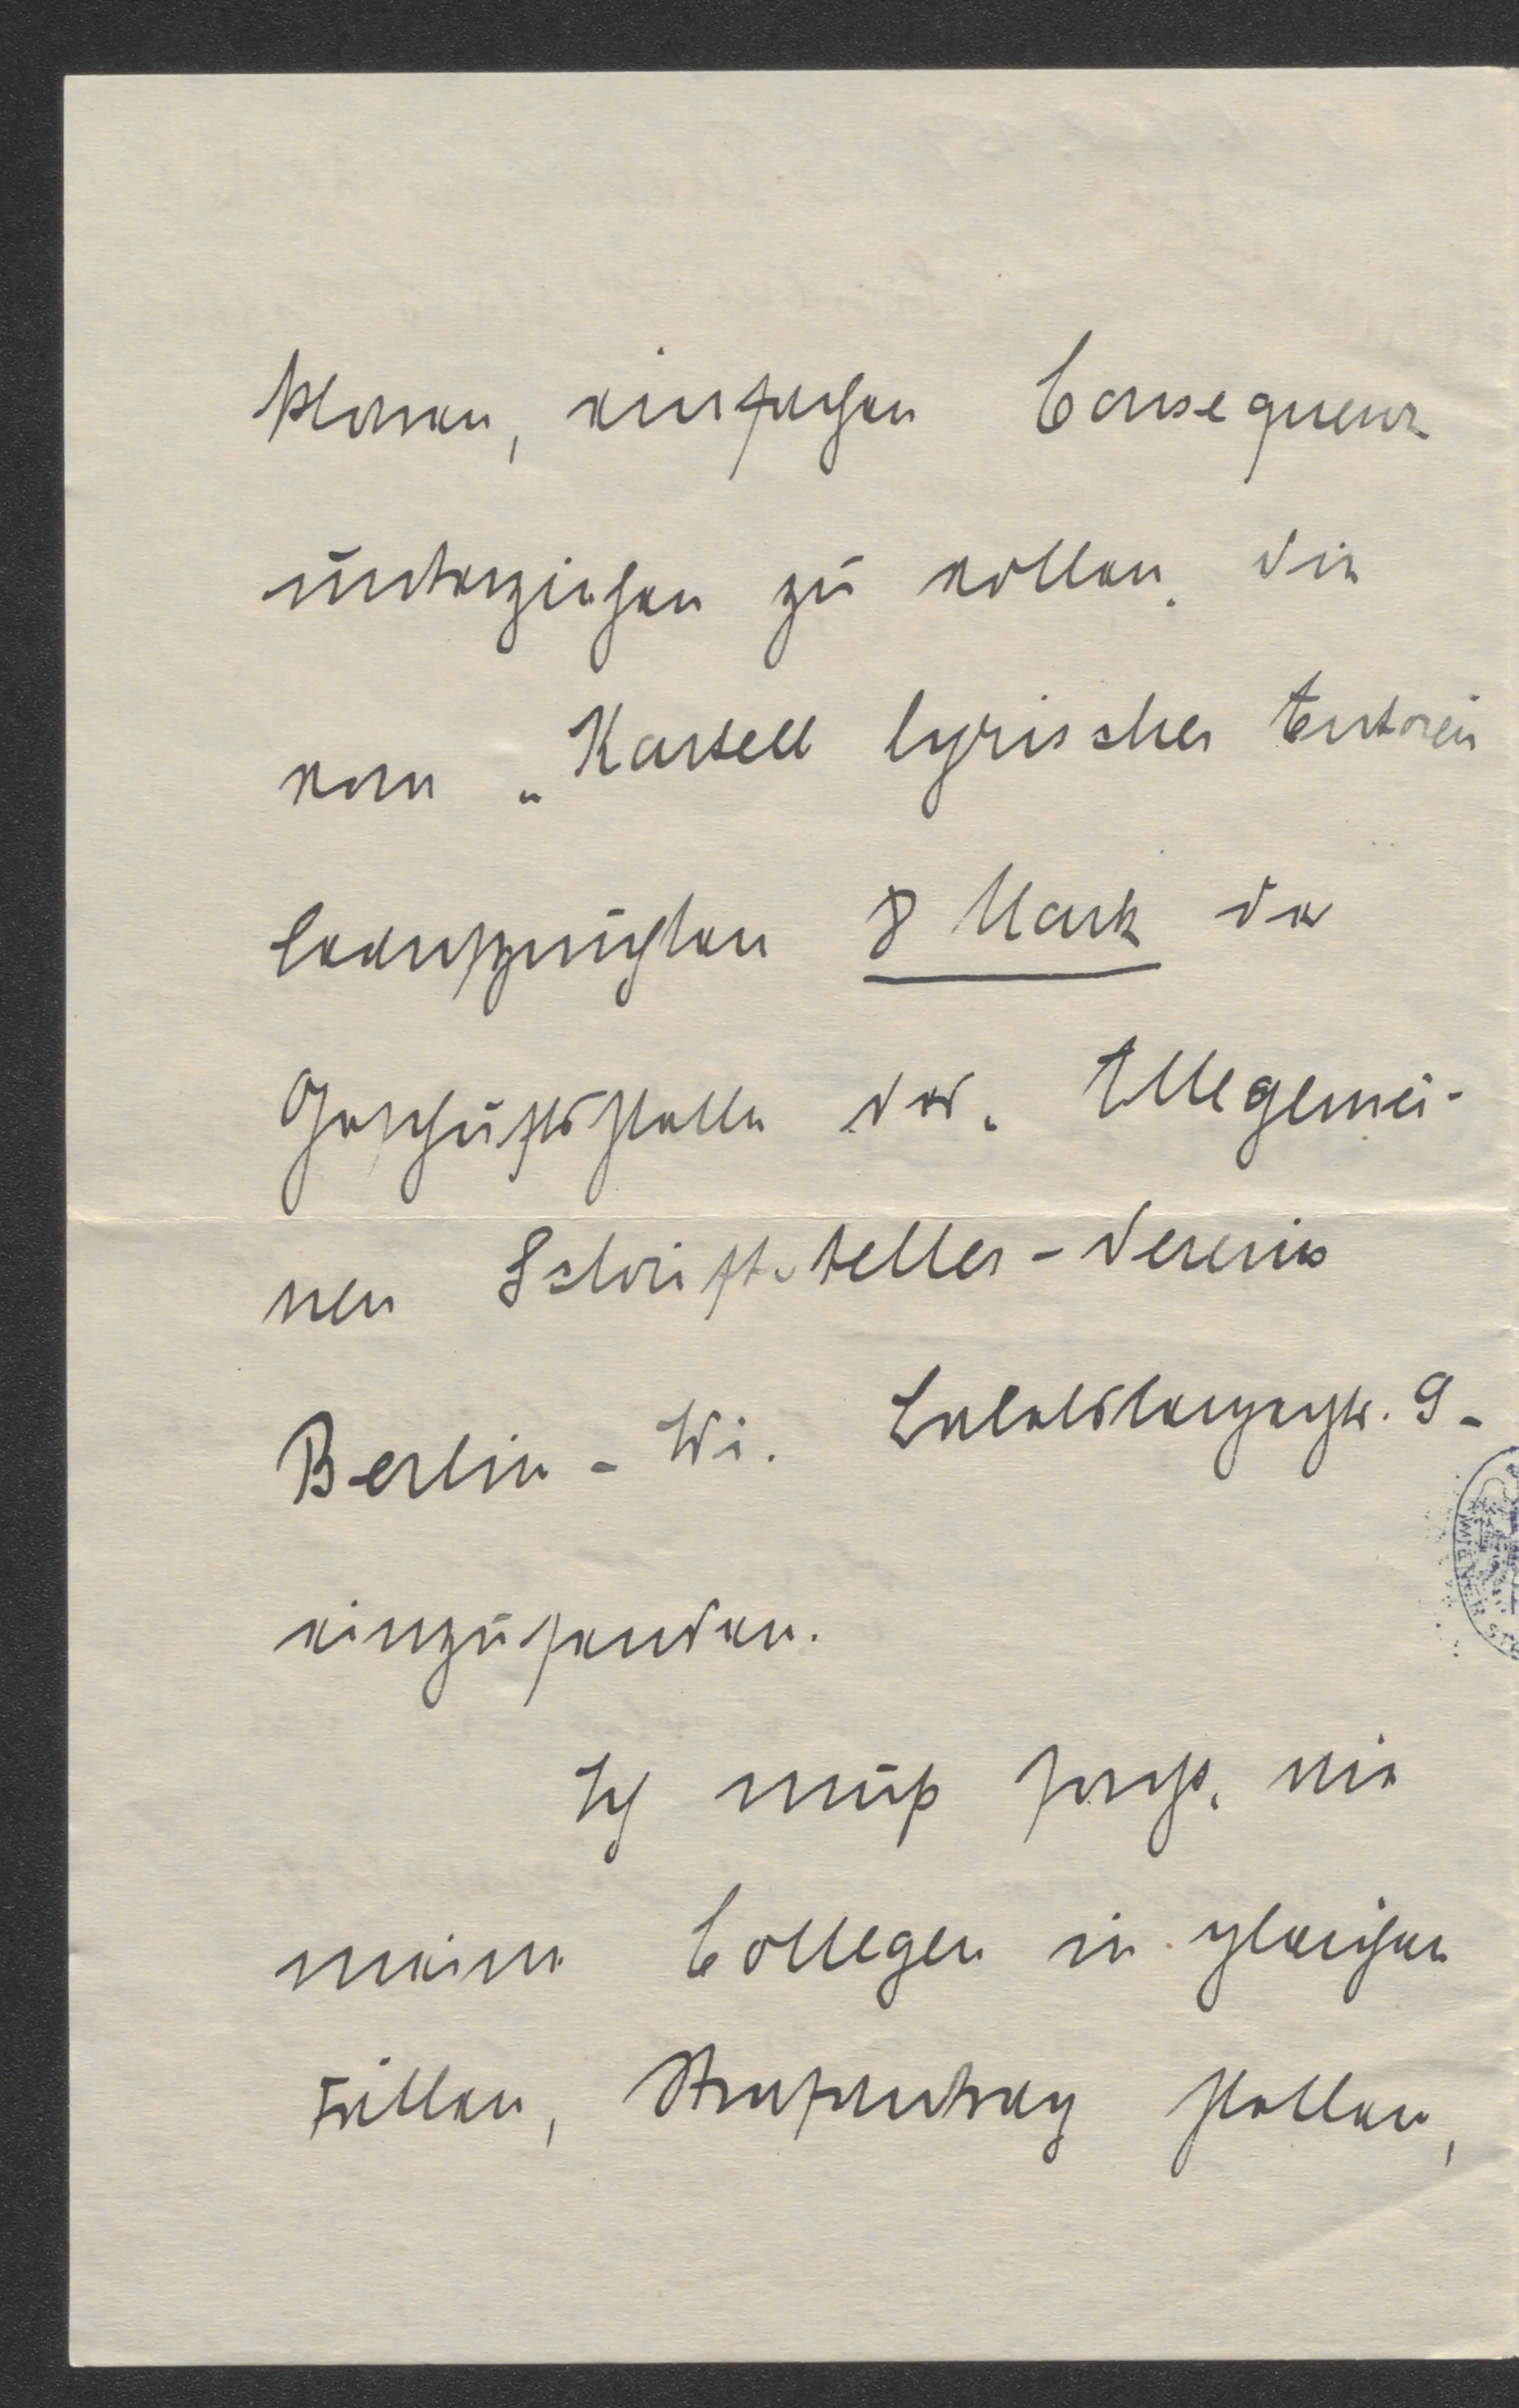 klaren, einfachen Consequenz
unterziehen zu wollen, die
vom „Kartell lyrischer Autoren
beanspruchten 8 Mark der
Geschäftsstelle des „Allgemei-
nen Schriftsteller-Vereins
Berlin - Wi. Babelsbergerstr. 9 -
einzusenden.
Ich muß sonst, wie
meine Collegen in gleichen
Fällen, Strafantrag stellen,
WIENER ST